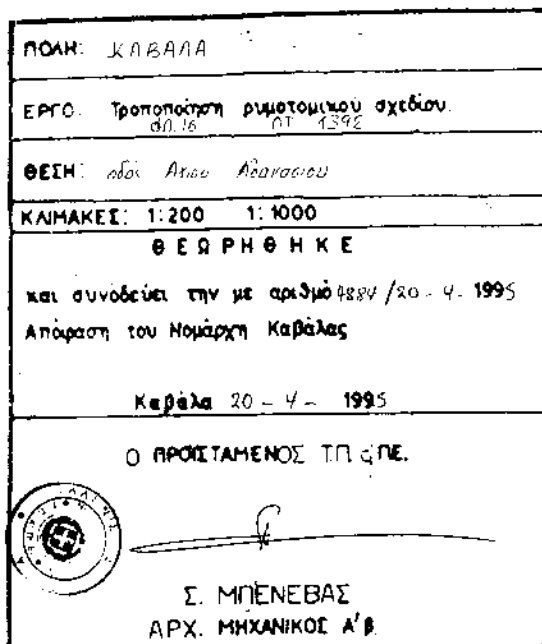 ΠΟΛΗ: ΚΑΒΑΛΑ
ΕΡΓΟ. Τροποποίηση ρυμοτομικού σχεδίου.
ΦΠ.16 ΟΤ 1392
ΘΕΣΗ: οδός Αγίου Αθανασίου
ΚΛΙΜΑΚΕΣ: 1:200 1:1000
ΘΕΩΡΗΘΗΚΕ
και συνοδεύει την με αριθμό 4884/20-4-1995
Απόφαση του Νομάρχη Καβάλας
Καβάλα 20-4-1995
Ο ΠΡΟΙΣΤΑΜΕΝΟΣ Τ.Π. & ΠΕ.
Σ. ΜΠΕΝΕΒΑΣ
ΑΡΧ. ΜΗΧΑΝΙΚΟΣ Α'β.